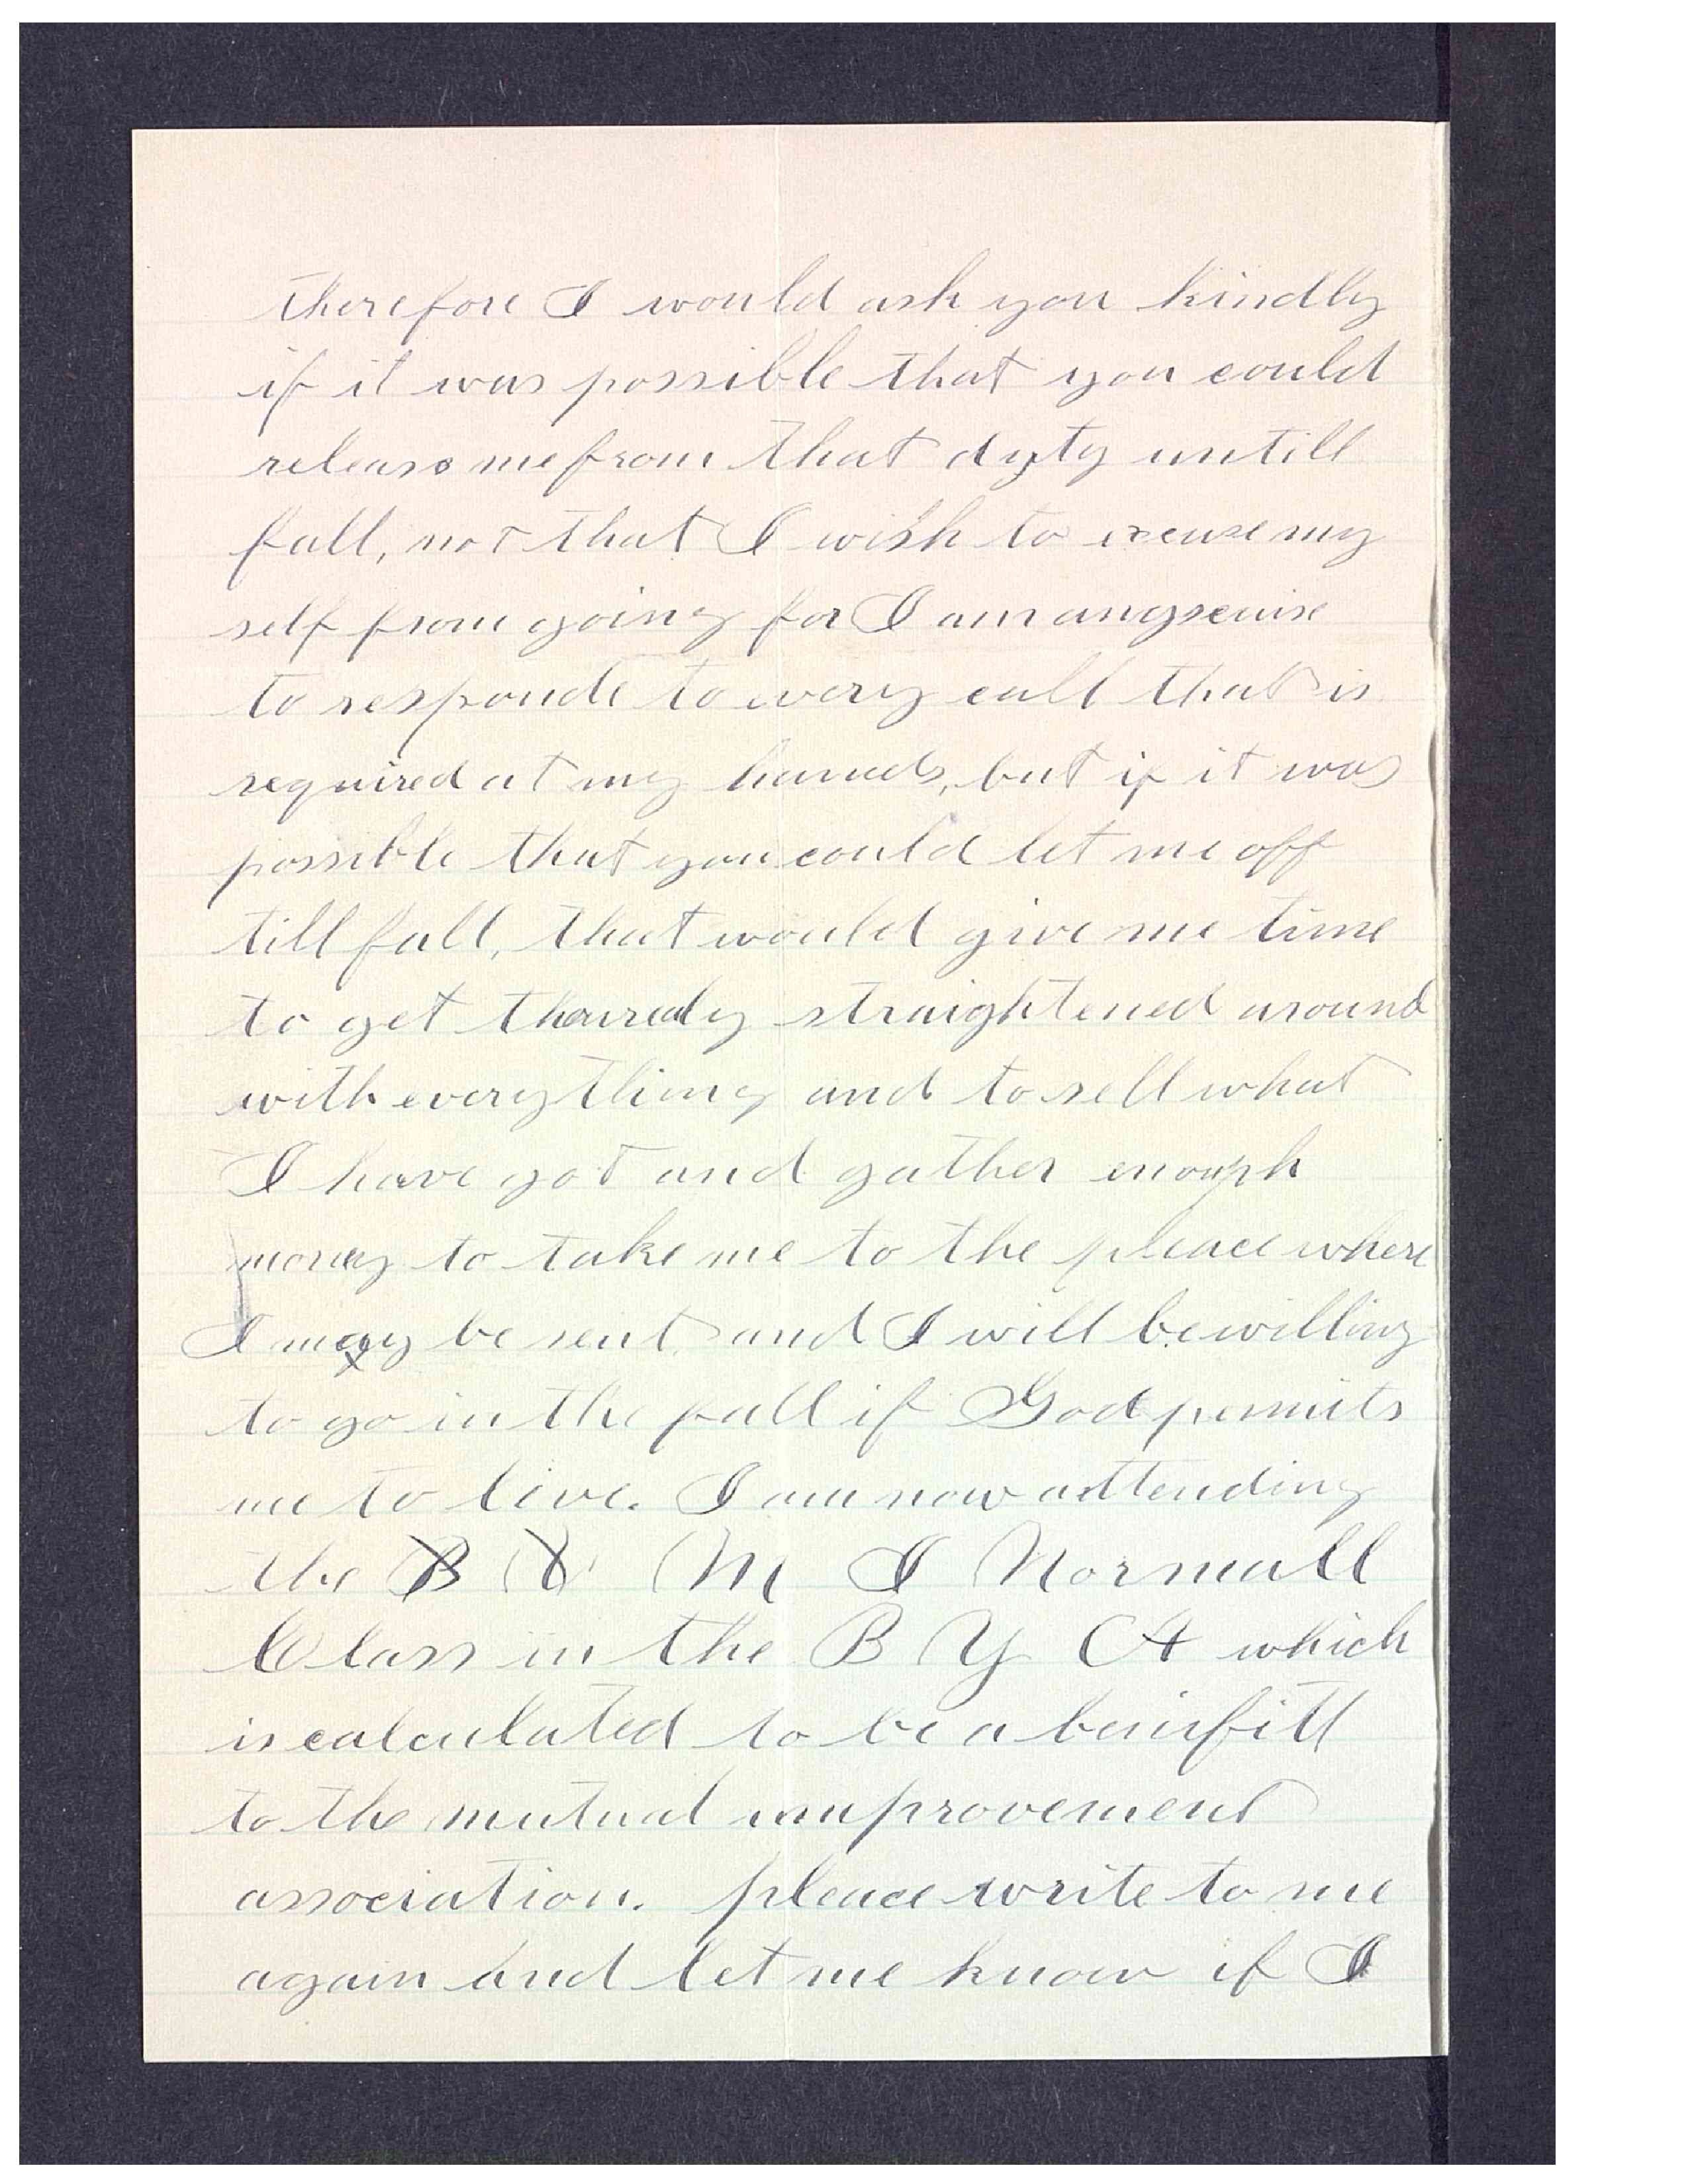 therefore I would ask you kindly
if it was possible that you could
release me from that dyty untill
fall, not that I wish to excuse my
self from going for I am angscuise
to responde to every call that is
required at my hands, but if it was
possible that you could let me off
till fall, that would give me time
to get straightened around
with everything and to sell what
I have got and gather enough
money to take me to the pleace where
I may be sent and I will be willing
to go in the fall if God permits
me to live. I am now attending
the M I Normall
Class in the B Y A which
is calculated to be a benifitt
to the mutual improvement
association. pleace write to me
again and let me know if I